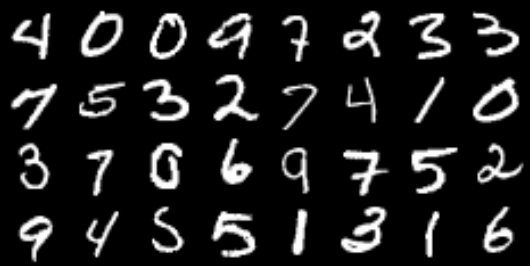 4 0 0 9 7 2 3 3
7 5 3 2 7 4 1 0
3 7 0 6 9 7 5 2
9 4 5 5 1 3 1 6